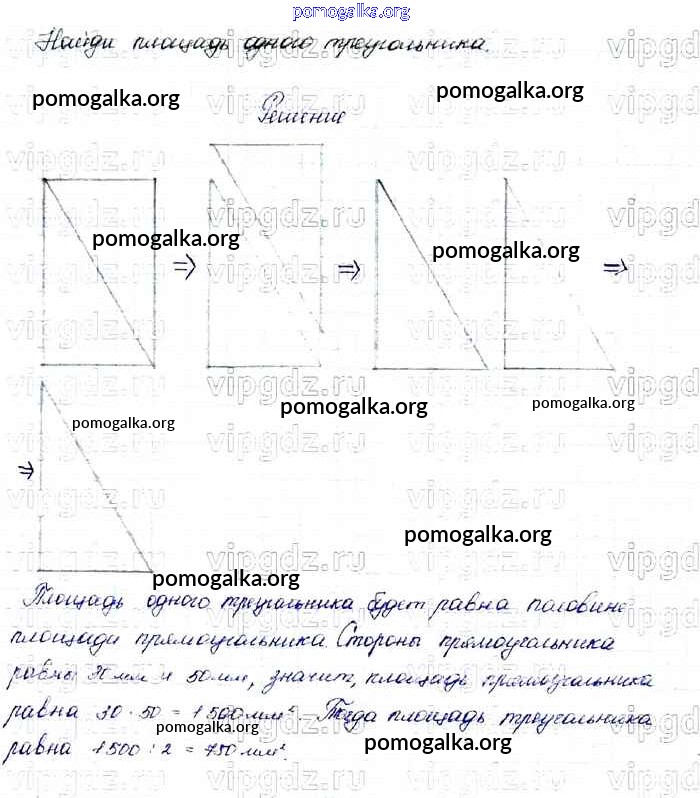 pomogalka.org
Найди площадь одного треугольника.
pomogalka.org pomogalka.org
Решение
pomogalka.org pomogalka.org
⇒ ⇒ ⇒
pomogalka.org pomogalka.org
pomogalka.org
⇒
pomogalka.org
pomogalka.org
Площадь одного треугольника будет равна половине
площади прямоугольника. Стороны прямоугольника
равны 30 мм и 50 мм, значит, площадь прямоугольника
равна 30 · 50 = 1500 мм². Тогда площадь треугольника
pomogalka.org pomogalka.org
равна 1500 : 2 = 750 мм².
vipgdz.ru vipgdz.ru vipgdz.ru vipgdz.ru